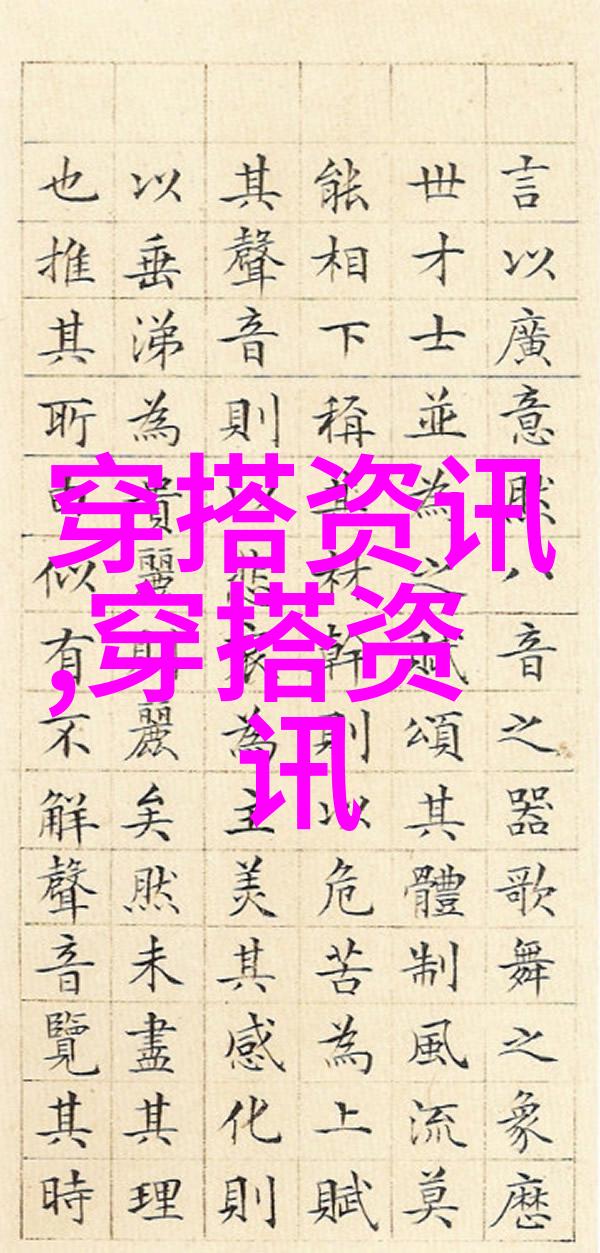 言以廣意然八音之器歌舞之象歷
世才士並為之賦頌其體制風流莫
能相下稱其材幹則以危苦為上賦
其聲音則以悲哀為主美其感化則
以垂涕為貴麗則麗矣然未盡其理
也推其所由似有不解聲音覽其時
穿搭资讯
,穿搭资
讯